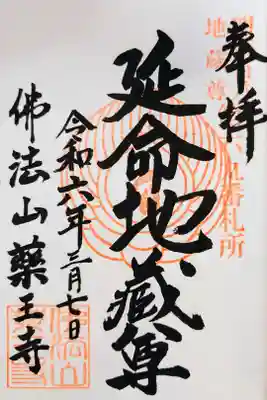 奉拝
延命地蔵尊
令和六年三月七日
佛法山藥王寺
地蔵尊
番札所